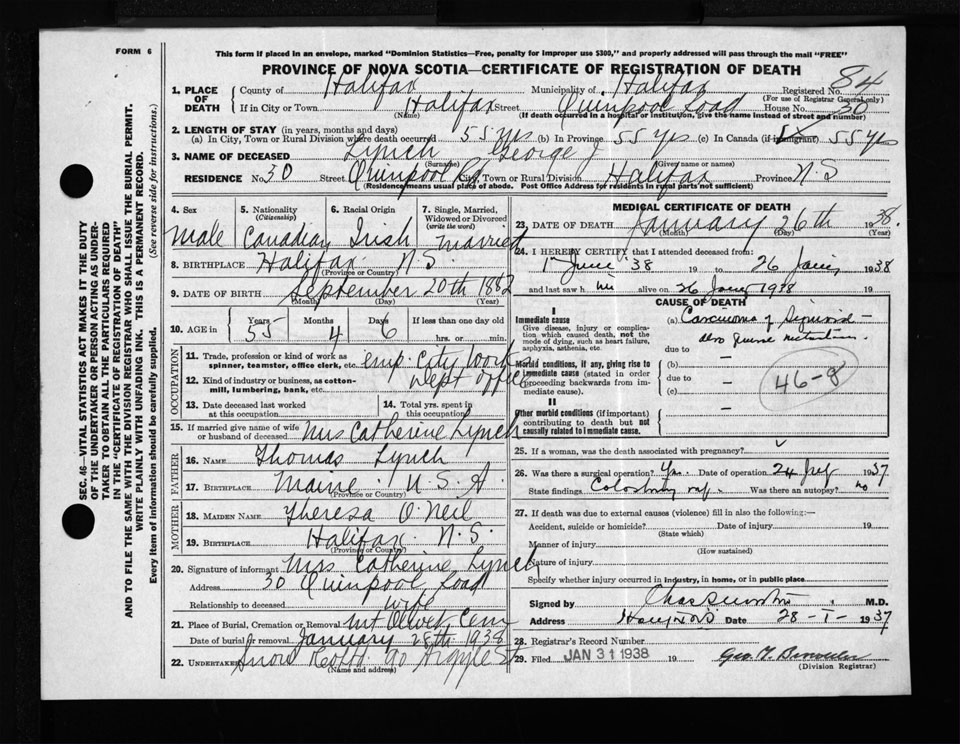 FORM 6
This form if placed in an envelope, marked "Dominion Statistics—Free, penalty for improper use $300," and properly addressed will pass through the mail "FREE"
PROVINCE OF NOVA SCOTIA—CERTIFICATE OF REGISTRATION OF DEATH
84
1. PLACE OF DEATH County of Halifax Municipality of Halifax Registered No.
(For use of Registrar General only)
If in City or Town Halifax Street Quinpool Road House No. 30
(Name) (If death occurred in a hospital or institution, give the name instead of street and number)
2. LENGTH OF STAY (in years, months and days)
(a) In City, Town or Rural Division where death occurred 55 yrs (b) In Province 55 yrs (c) In Canada (if immigrant) 55 yrs
3. NAME OF DECEASED Lynch George J
(Surname) (Given name or names)
RESIDENCE No. 30 Street Quinpool Rd City, Town or Rural Division Halifax Province N S
(Residence means usual place of abode. Post Office Address for residents in rural parts not sufficient)
4. Sex 5. Nationality (Citizenship) 6. Racial Origin 7. Single, Married, Widowed or Divorced (write the word)
Male Canadian Irish married
8. BIRTHPLACE Halifax N. S.
(Province or Country)
9. DATE OF BIRTH September 20th 1882
(Month) (Day) (Year)
10. AGE in Years Months Days If less than one day old
55 4 6 hrs. or min.
OCCUPATION
11. Trade, profession or kind of work as spinner, teamster, office clerk, etc. emp. City Works
12. Kind of industry or business, as cotton-mill, lumbering, bank, etc. Dept office
13. Date deceased last worked at this occupation 14. Total yrs. spent in this occupation
15. If married give name of wife or husband of deceased Mrs Catherine Lynch
FATHER
16. NAME Thomas Lynch
17. BIRTHPLACE Maine U. S. A.
(Province or Country)
MOTHER
18. MAIDEN NAME Theresa O'Neil
19. BIRTHPLACE Halifax N. S.
(Province or Country)
20. Signature of informant Mrs Catherine Lynch
Address 30 Quinpool Road
Relationship to deceased wife
21. Place of Burial, Cremation or Removal Mt Olivet Cem
Date of burial or removal January 28th 1938
22. Undertaker Snow 90 Argyle St
(Name and address)
MEDICAL CERTIFICATE OF DEATH
23. DATE OF DEATH January 26th 1938.
(Month) (Day) (Year)
24. I HEREBY CERTIFY that I attended deceased from:
1 '38 19 to 26 1938
and last saw h im alive on 26 19
CAUSE OF DEATH
I
Immediate cause
Give disease, injury or complication which caused death, not the mode of dying, such as heart failure, asphyxia, asthenia, etc.
(a) Carcinoma of Sigmoid —
due to
Morbid conditions, if any, giving rise to immediate cause (stated in order proceeding backwards from immediate cause).
(b)
due to
(c)
46-8
II
Other morbid conditions (if important) contributing to death but not causally related to immediate cause.
25. If a woman, was the death associated with pregnancy?
26. Was there a surgical operation? Yes Date of operation 24 1937
State findings Was there an autopsy? no
27. If death was due to external causes (violence) fill in also the following:—
Accident, suicide or homicide? Date of injury 19
(State which)
Manner of injury
(How sustained)
Nature of injury
Specify whether injury occurred in industry, in home, or in public place
Signed by M.D.
Address Date 28-I-1937
28. Registrar's Record Number
29. Filed JAN 31 1938 19
(Division Registrar)
SEC. 46—VITAL STATISTICS ACT MAKES IT THE DUTY
OF THE UNDERTAKER OR PERSON ACTING AS UNDER-
TAKER TO OBTAIN ALL THE PARTICULARS REQUIRED
IN THE "CERTIFICATE OF REGISTRATION OF DEATH"
AND TO FILE THE SAME WITH THE DIVISION REGISTRAR WHO SHALL ISSUE THE BURIAL PERMIT.
WRITE PLAINLY WITH UNFADING INK. THIS IS A PERMANENT RECORD.
Every item of information should be carefully supplied. (See reverse side for instructions.)